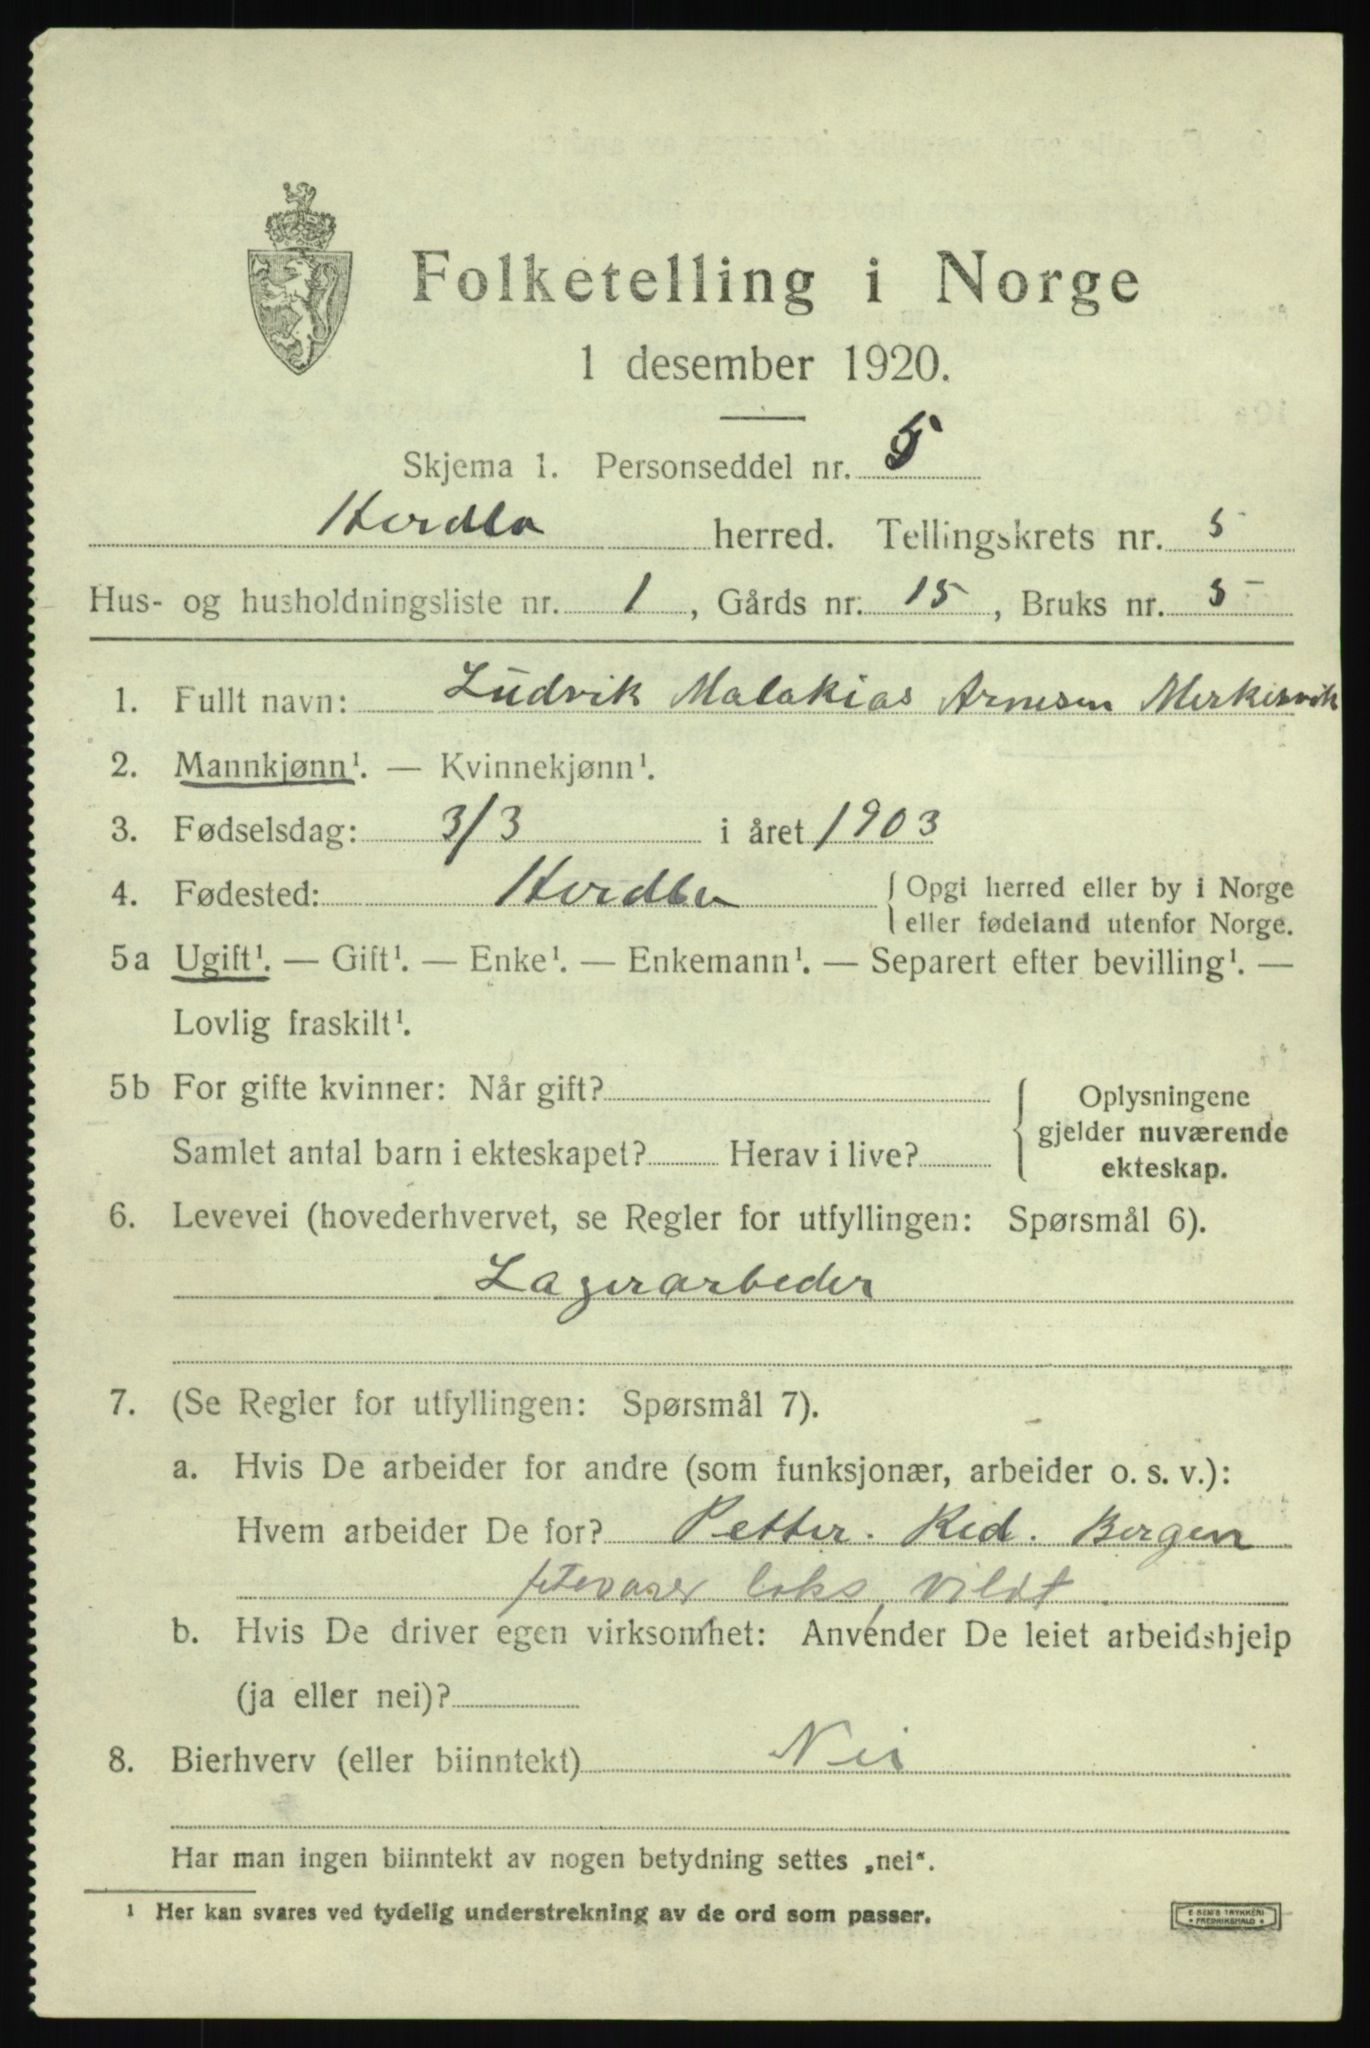 Folketelling i Norge
1 desember 1920.
Skjema 1. Personseddel nr. 5
Herdla herred. Tellingskrets nr. 5
Hus- og husholdningsliste nr. 1, Gårds nr. 15, Bruks nr. 5
1. Fullt navn: Ludvik Malakias Arnesen Merkesvik
2. Mannkjønn¹. — Kvinnekjønn¹.
3. Fødselsdag: 3/3 i året 1903
4. Fødested: Herdla { Opgi herred eller by i Norge
eller fødeland utenfor Norge.
5a Ugift¹. — Gift¹. — Enke¹. — Enkemann¹. — Separert efter bevilling¹. —
Lovlig fraskilt¹.
5b For gifte kvinner: Når gift?
Samlet antal barn i ekteskapet? Herav i live?
Oplysningene
gjelder nuværende
ekteskap.
6. Levevei (hovederhvervet, se Regler for utfyllingen: Spørsmål 6).
Lagerarbeder
7. (Se Regler for utfyllingen: Spørsmål 7).
a. Hvis De arbeider for andre (som funksjonær, arbeider o. s. v.):
Hvem arbeider De for? Petter. Kid. Bergen
fetevarer laks, vildt.
b. Hvis De driver egen virksomhet: Anvender De leiet arbeidshjelp
(ja eller nei)?
8. Bierhverv (eller biinntekt) Nei
Har man ingen biinntekt av nogen betydning settes „nei“.
¹ Her kan svares ved tydelig understrekning av de ord som passer.
E. SEM'S TRYKKERI
• FREDRIKSHALD •